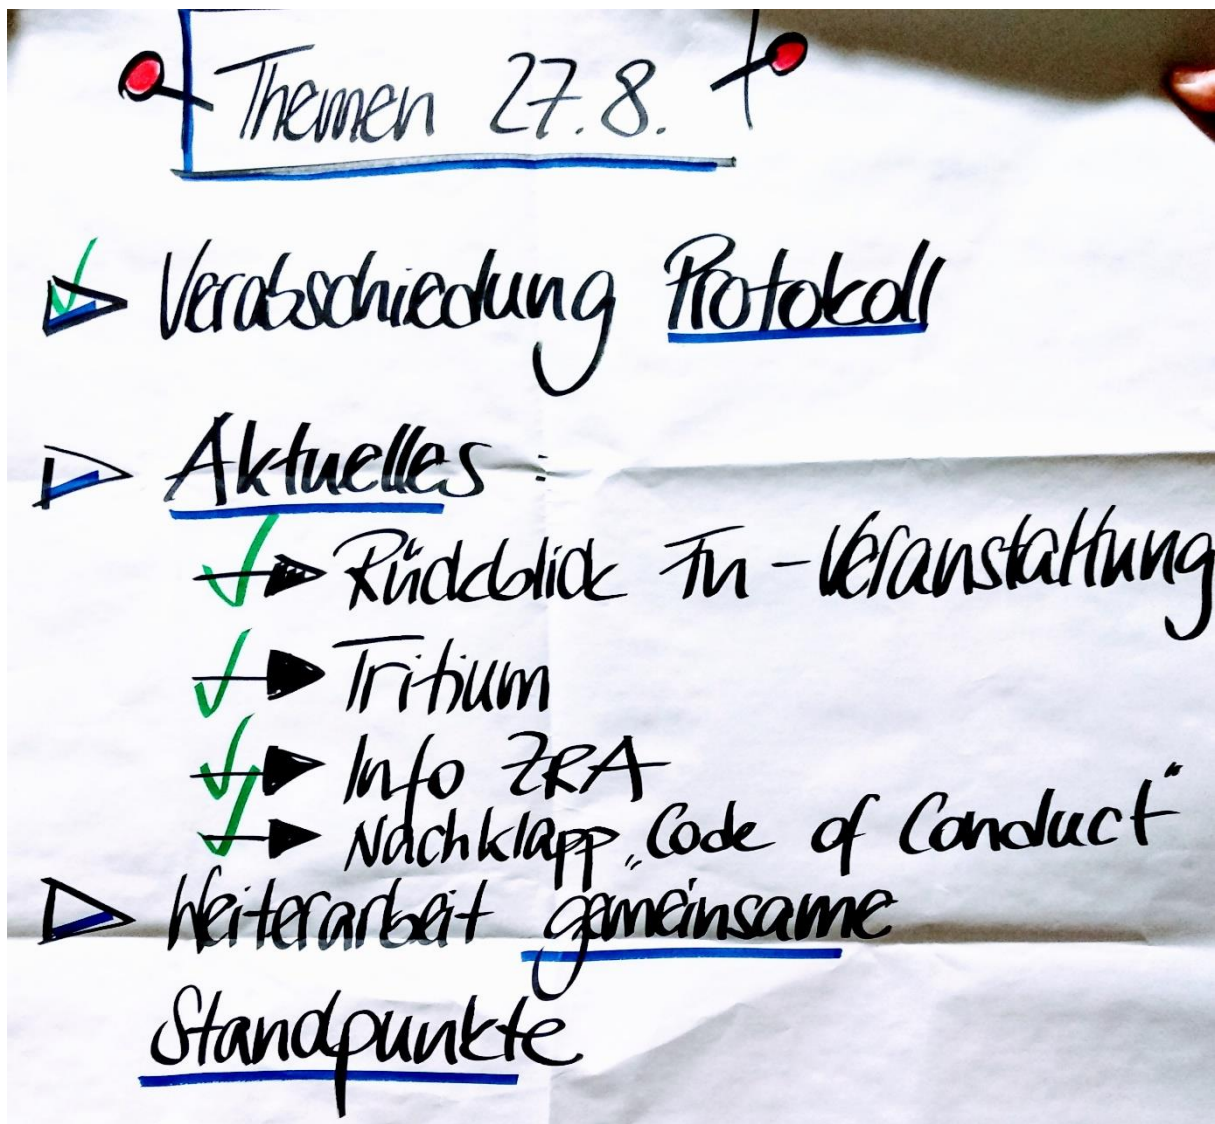 Themen 27.8.
Verabschiedung Protokoll
Aktuelles:
Rückblick -Veranstaltung
Tritium
Info ZRA
Nachklapp „Code of Conduct“
Weiterarbeit gemeinsame
Standpunkte